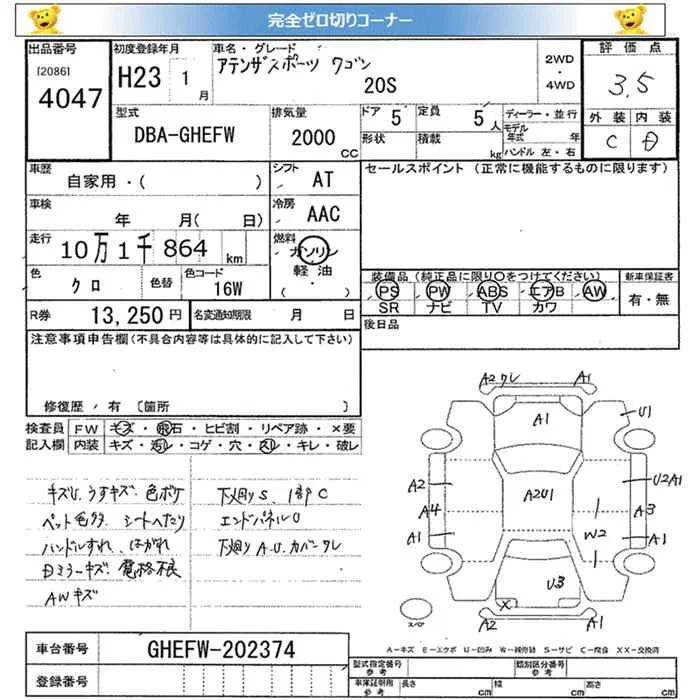 完全ゼロ切りコーナー
出品番号 [2086] 4047
初度登録年月 H23 1 月
車名・グレード アテンザスポーツ ワゴン 20S
2WD ・ 4WD
評価点 3.5
外装 C 内装 D
型式 DBA-GHEFW
排気量 2000 CC
ドア 5 定員 5 人
形状 積載 kg
ディーラー・並行
モデル年式 年
ハンドル 左・右
車歴 自家用・( )
シフト AT
セールスポイント (正常に機能するものに限ります)
車検 年 月( 日)
冷房 AAC
走行 10万1千864 km
燃料 ガソリン 軽油 ・( )
色 クロ 色替 色コード 16W
装備品 (純正品に限り○をつけてください) 新車保証書
PS PW ABS エアB AW 有・無
SR ナビ TV カワ
R券 13,250円 名変通知期限 月 日
後日品
注意事項申告欄(不具合内容等は具体的に記入して下さい)
修復歴 / 有 〔箇所
検査員 FW キズ・飛石・ヒビ割・リペア跡・×要
記入欄 内装 キズ・汚レ・コゲ・穴・スレ・キレ・破レ
キズU.うすキズ.色ボケ
シートヘたり
ハンドルすれ、はがれ
ミラーキズ
AWキズ
下廻りS.1部C
エンドパネルU
下廻りA.U.カバークレ
A2クレ A1
A1 U1
A2 A2U1 U2A1
A4 A3
A1 W2 A1
U3
X
A2 A1
スペア
A-キズ E-エクボ U-凹み W-補修跡 S-サビ C-腐食 XX-交換済
車台番号 GHEFW-202374
登録番号
型式指定番号 参考 類別区分番号 参考
車庫証明用 参考 長さ cm 幅 cm 高さ cm